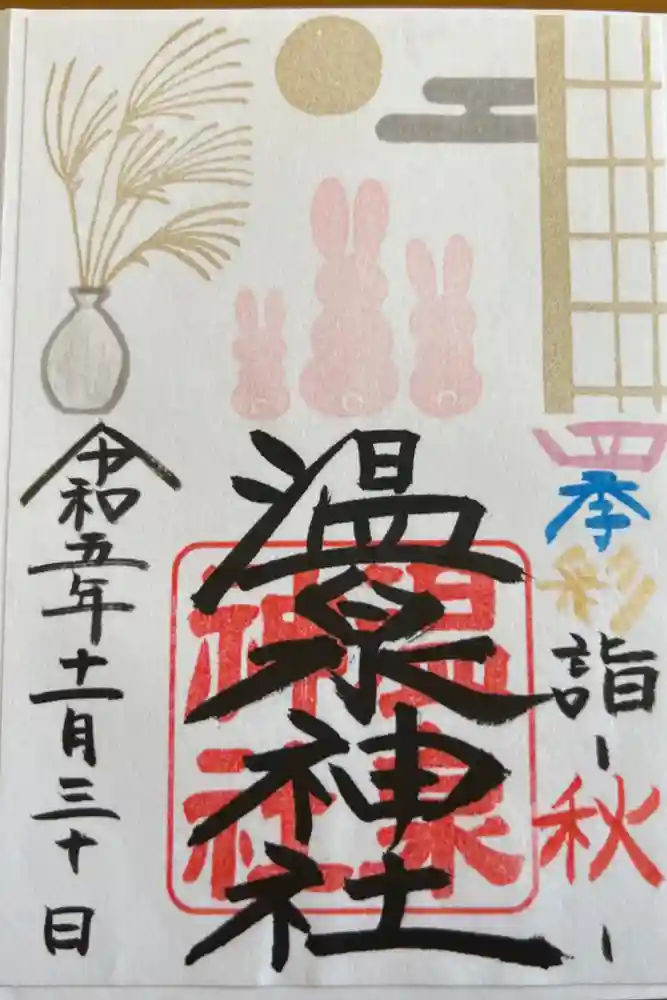 四季彩詣 -秋-
温泉神社
温泉神社
令和五年十一月三十日